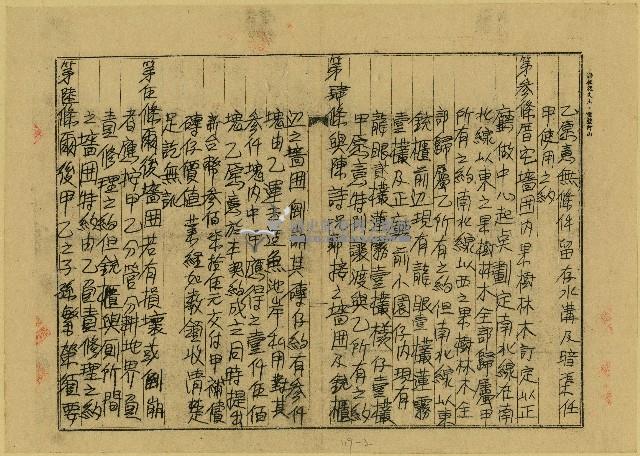 乙愿意無條件留存水溝及暗渠任
甲使用之約
第參條厝宅墻圍內果樹林木訂定以正
廳做中心起点劃定南北線在南
北線以東之果樹林木全部歸屬甲
所有之約南北線以西之果樹林木全
部歸屬乙所有之約但南北線以東
銃櫃前边現有龍眼壹欉蓮霧
壹欉及正 前小園仔內現有
龍眼貳欉蓮霧壹欉 仔壹欉
甲愿意特別讓渡與乙所有之約
第肆條與陳詩 毗接之墻圍及銃櫃
边之墻圍倒 其磚仔約有參仟
塊由乙運去 魚池岸利用對其
參仟塊內中甲應得之壹仟伍佰
塊乙愿意於本契約成立同時提出
新台幣參佰柒拾伍元交付甲補償
磚仔價值業經如數領收清楚
足訖無訛
第伍條爾後墻圍若有損壞或倒崩
者應按甲乙分管分耕地界負
責修理之約但銃櫃與廁所間
之墻圍特約由乙負責修理之約
第陸條爾後甲乙之子孫繁榮須要
19-2